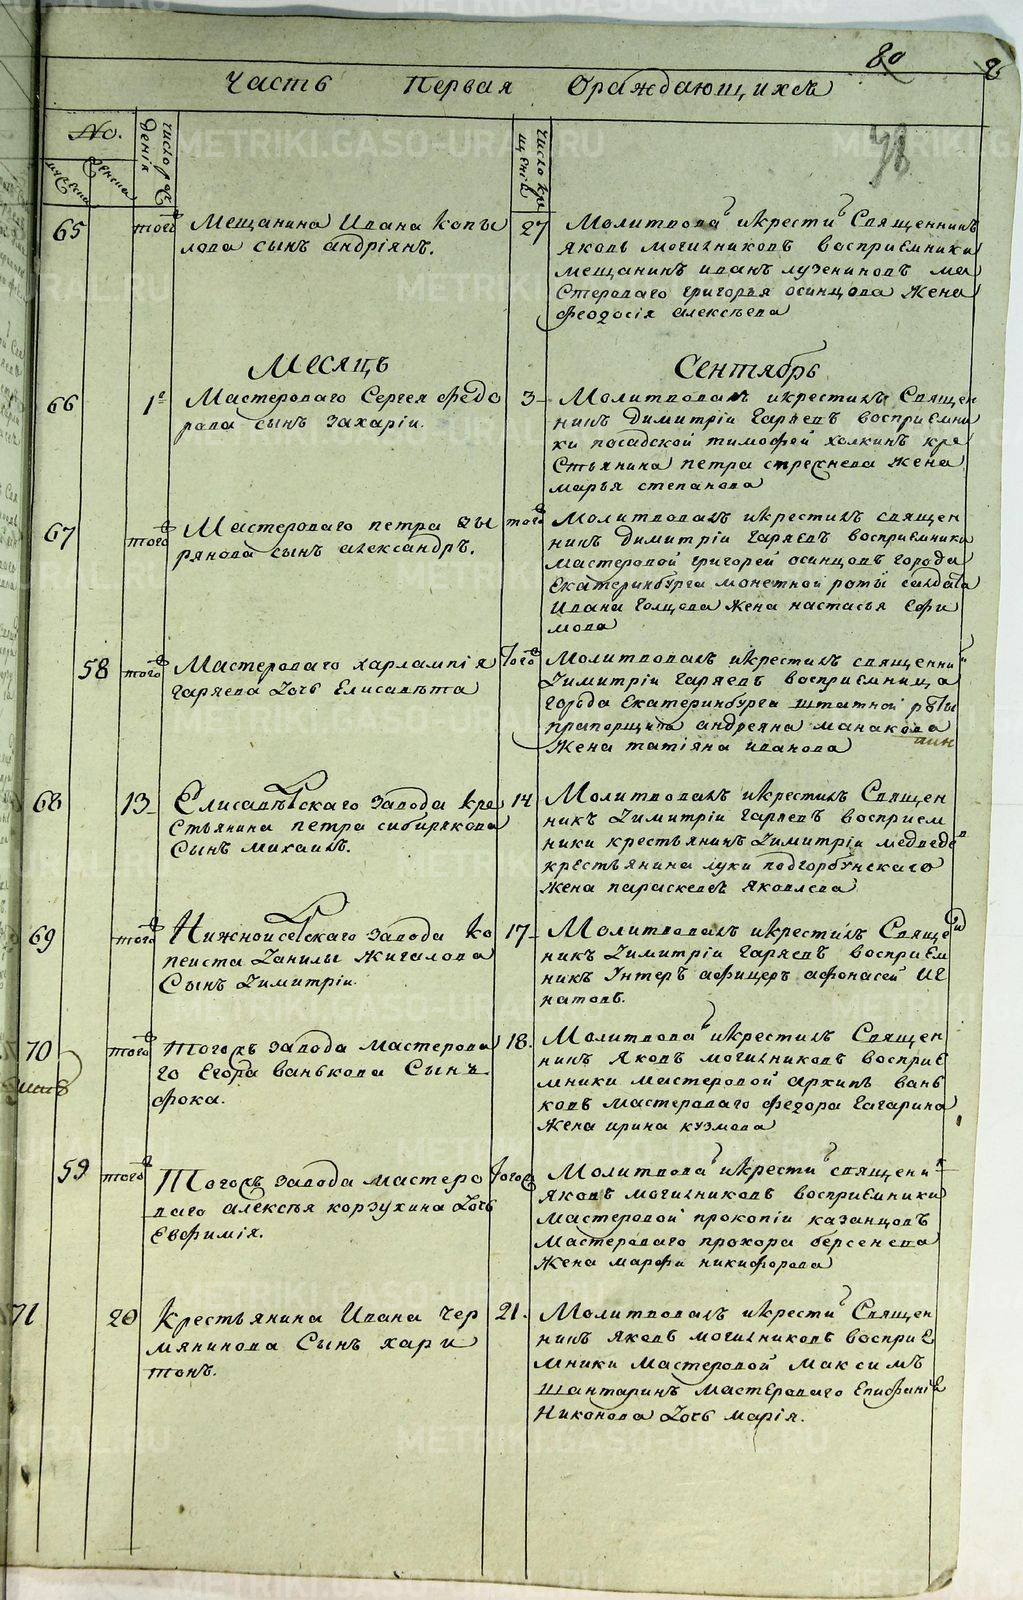 80
Часть Первая Ораждающихся
No.
Число рож
денія
Число кре
щенія
мужеска
женска
65
того
Мещанина Ивана Капы
лова сынъ андріянъ.
27
Молитвовалъ икрестилъ Священникъ
яковъ могилниковъ восприемники
мещанинъ иванъ лузениновъ ма
стероваго григорья осинцова жена
феодосія алексѣева
Месяцъ Сентябрь
66
1е
Мастероваго Сергея федо
рова сынъ захаріи.
3
Молитвовалъ икрестилъ Священ
никъ димитріи Гаряевъ восприемни
ки посадской тимофей холкинъ кре
стьянина петра стрехнева жена
марья степанова
67
того
Мастероваго петра
рянова сынъ александръ.
того
Молитвовалъ икрестилъ священ
никъ димитріи Гаряевъ восприемники
мастеровой григорей осинцовъ города
Екатеринбурга монетной роты салдата
Ивана Голцова жена настасья Ефи
мова
58
того
Мастероваго харлампія
Гаряева дочь Елисавѣта
того
Молитвовалъ икрестилъ священни
димитріи Гаряевъ восприемница
города Екатеринбурга штатной роты
прапорщика андреяна манакова
жена татіяна иванова
68
13
Елисавѣтскаго завода кре
стьянина петра сибирякова
Сынъ михаилъ.
14
Молитвовалъ икрестилъ Священ
никъ димитріи Гаряевъ восприем
ники крестьянинъ димитріи медведев
крестьянина луки подгорбунскаго
жена параскева яковлева
69
того
Нижноисетскаго завода ко
пеиста данилы жигалова
Сынъ димитріи.
17
Молитвовалъ икрестилъ Свяще
никъ димитріи Гаряевъ восприем
никъ Унтеръ афицеръ афонасей Иг
натовъ.
70
того
Тогожъ завода мастерова
го Егора ванькова Сынъ
фока.
18.
Молитвовалъ икрестилъ Священ
никъ яковъ могилниковъ восприе
мники мастеровой архипъ вань
ковъ мастероваго федора Гагарина
жена ирина кузмова
59
того
Тогожъ завода мастеро
ваго алексѣя корзухина дочь
Евфимія.
того
Молитвовалъ икрестилъ священикъ
яковъ могилниковъ восприемники
мастеровой прокопіи казанцовъ
мастероваго прохора берсенева
жена марфа никифорова
71
20
Крестьянина Ивана чер
мянинова Сынъ хари
тонъ.
21.
Молитвовалъ икрестилъ Священ
никъ яковъ могилниковъ восприе
мники мастеровой максимъ
шантаринъ мастероваго Епифанія
Никонова дочь марія.